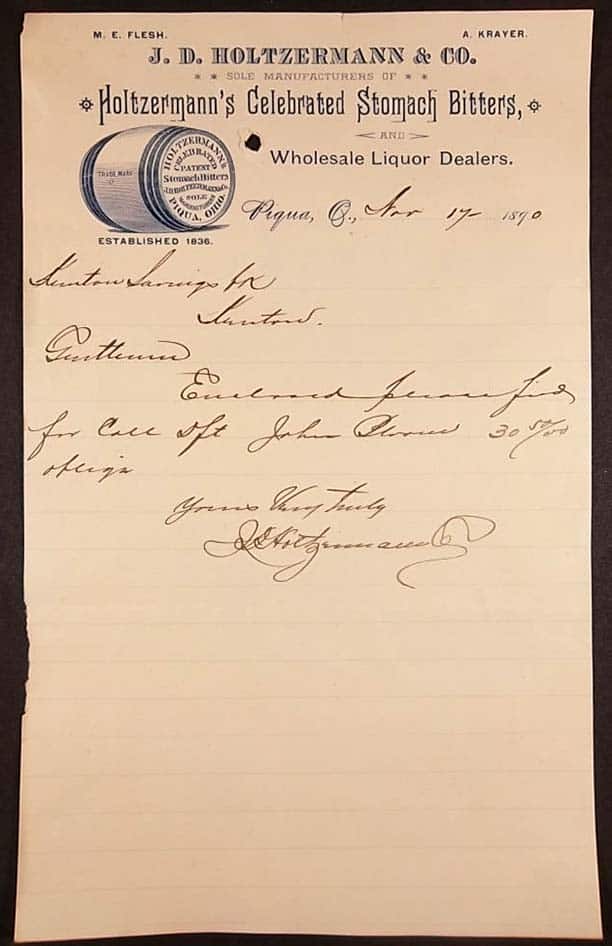 M. E. FLESH.
A. KRAYER.
J. D. HOLTZERMANN & CO.
* * SOLE MANUFACTURERS OF * *
Holtzermann's Celebrated Stomach Bitters,
AND
Wholesale Liquor Dealers.
TRADE MARK
HOLTZERMANN'S
CELEBRATED
PATENT
Stomach Bitters
J.D. HOLTZERMANN & Co.
SOLE
MANUFACTURERS
PIQUA, OHIO.
ESTABLISHED 1836.
Piqua, O., Nov 17 1890
Kenton Savings Bk
Kenton.
Gentlemen
Enclosed please find
for Coll Dft John 30 50/00
oblige
Yours Very Truly
J D Holtzermann Co